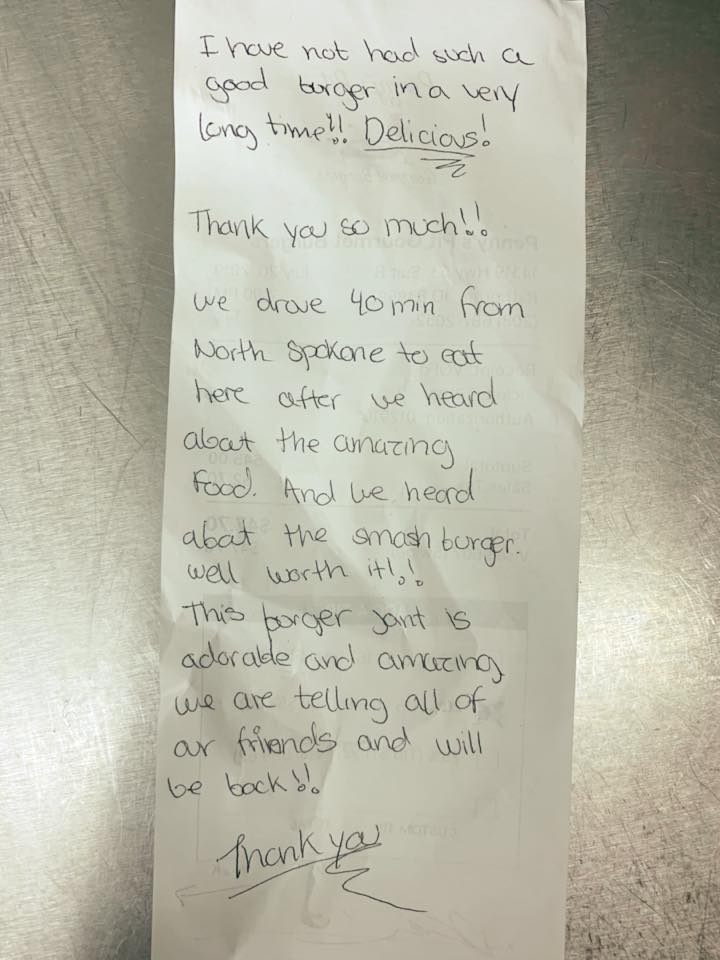 I have not had such a
good burger in a very
long time!!! Delicious!
Thank you so much!!!
we drove 40 min from
North Spokane to eat
here after we heard
about the amazing
food. And we heard
about the smash burger.
well worth it!!!
This burger jont is
adorable and amazing
we are telling all of
our friends and will
be back!!!
Thank you